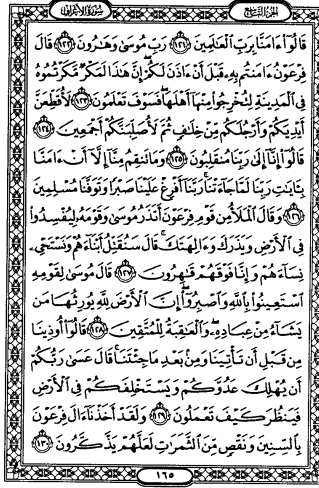 سورة الأعراف الجزء التاسع
قَالُوٓا۟ ءَامَنَّا بِرَبِّ ٱلْعَٰلَمِينَ ١٢١ رَبِّ مُوسَىٰ وَهَٰرُونَ ١٢٢ قَالَ
فِرْعَوْنُ ءَامَنتُم بِهِۦ قَبْلَ أَنْ ءَاذَنَ لَكُمْ إِنَّ هَٰذَا لَمَكْرٌ مَّكَرْتُمُوهُ
فِى ٱلْمَدِينَةِ لِتُخْرِجُوا۟ مِنْهَآ أَهْلَهَا فَسَوْفَ تَعْلَمُونَ ١٢٣ لَأُقَطِّعَنَّ
أَيْدِيَكُمْ وَأَرْجُلَكُم مِّنْ خِلَٰفٍ ثُمَّ لَأُصَلِّبَنَّكُمْ أَجْمَعِينَ ١٢٤
قَالُوٓا۟ إِنَّآ إِلَىٰ رَبِّنَا مُنقَلِبُونَ ١٢٥ وَمَا تَنقِمُ مِنَّآ إِلَّآ أَنْ ءَامَنَّا
بِـَٔايَٰتِ رَبِّنَا لَمَّا جَآءَتْنَا رَبَّنَآ أَفْرِغْ عَلَيْنَا صَبْرًا وَتَوَفَّنَا مُسْلِمِينَ
١٢٦ وَقَالَ ٱلْمَلَأُ مِن قَوْمِ فِرْعَوْنَ أَتَذَرُ مُوسَىٰ وَقَوْمَهُۥ لِيُفْسِدُوا۟
فِى ٱلْأَرْضِ وَيَذَرَكَ وَءَالِهَتَكَ قَالَ سَنُقَتِّلُ أَبْنَآءَهُمْ وَنَسْتَحْىِۦ
نِسَآءَهُمْ وَإِنَّا فَوْقَهُمْ قَٰهِرُونَ ١٢٧ قَالَ مُوسَىٰ لِقَوْمِهِ
ٱسْتَعِينُوا۟ بِٱللَّهِ وَٱصْبِرُوٓا۟ إِنَّ ٱلْأَرْضَ لِلَّهِ يُورِثُهَا مَن
يَشَآءُ مِنْ عِبَادِهِۦ وَٱلْعَٰقِبَةُ لِلْمُتَّقِينَ ١٢٨ قَالُوٓا۟ أُوذِينَا
مِن قَبْلِ أَن تَأْتِيَنَا وَمِنۢ بَعْدِ مَا جِئْتَنَا قَالَ عَسَىٰ رَبُّكُمْ
أَن يُهْلِكَ عَدُوَّكُمْ وَيَسْتَخْلِفَكُمْ فِى ٱلْأَرْضِ
فَيَنظُرَ كَيْفَ تَعْمَلُونَ ١٢٩ وَلَقَدْ أَخَذْنَآ ءَالَ فِرْعَوْنَ
بِٱلسِّنِينَ وَنَقْصٍ مِّنَ ٱلثَّمَرَٰتِ لَعَلَّهُمْ يَذَّكَّرُونَ ١٣٠
١٦٥